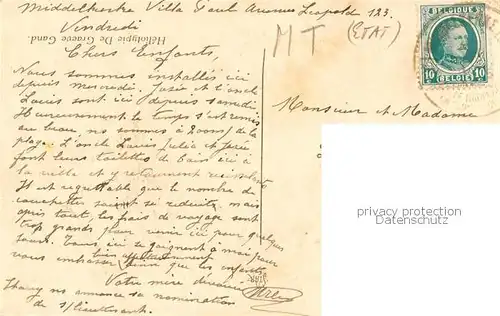 Middelkerke Villa Paul Avenue Leopold 123.
Vendredi
(ETAT)
MT
Chers Enfants,
Nous sommes installés ici
depuis mercredi. Josée et l'oncle
Louis sont ici depuis samedi
Heureusement le temps s'est remis
au beau. nos sommes à 200m/ de la
plage. L'oncle Louis, Julia et
font leurs toilettes de bain ici à
la villa et y retournent
Il est regrettable que le nombre de
soient si réduite, mais
après tout, les frais de voyage sont
trop grands pour venir ici pour quelques
jours. Tous ici se joignent à moi pour
vous embrasser bien affectueusement ainsi que les enfants.
Votre mère dévouée
nos annonce sa nomination
de s/lieutenant.
Héliotypie De Graeve Gand.
BELGIQUE
10 10
BELGIE
Monsieur et Madame
privacy protection
VINTAGE POSTCARDS